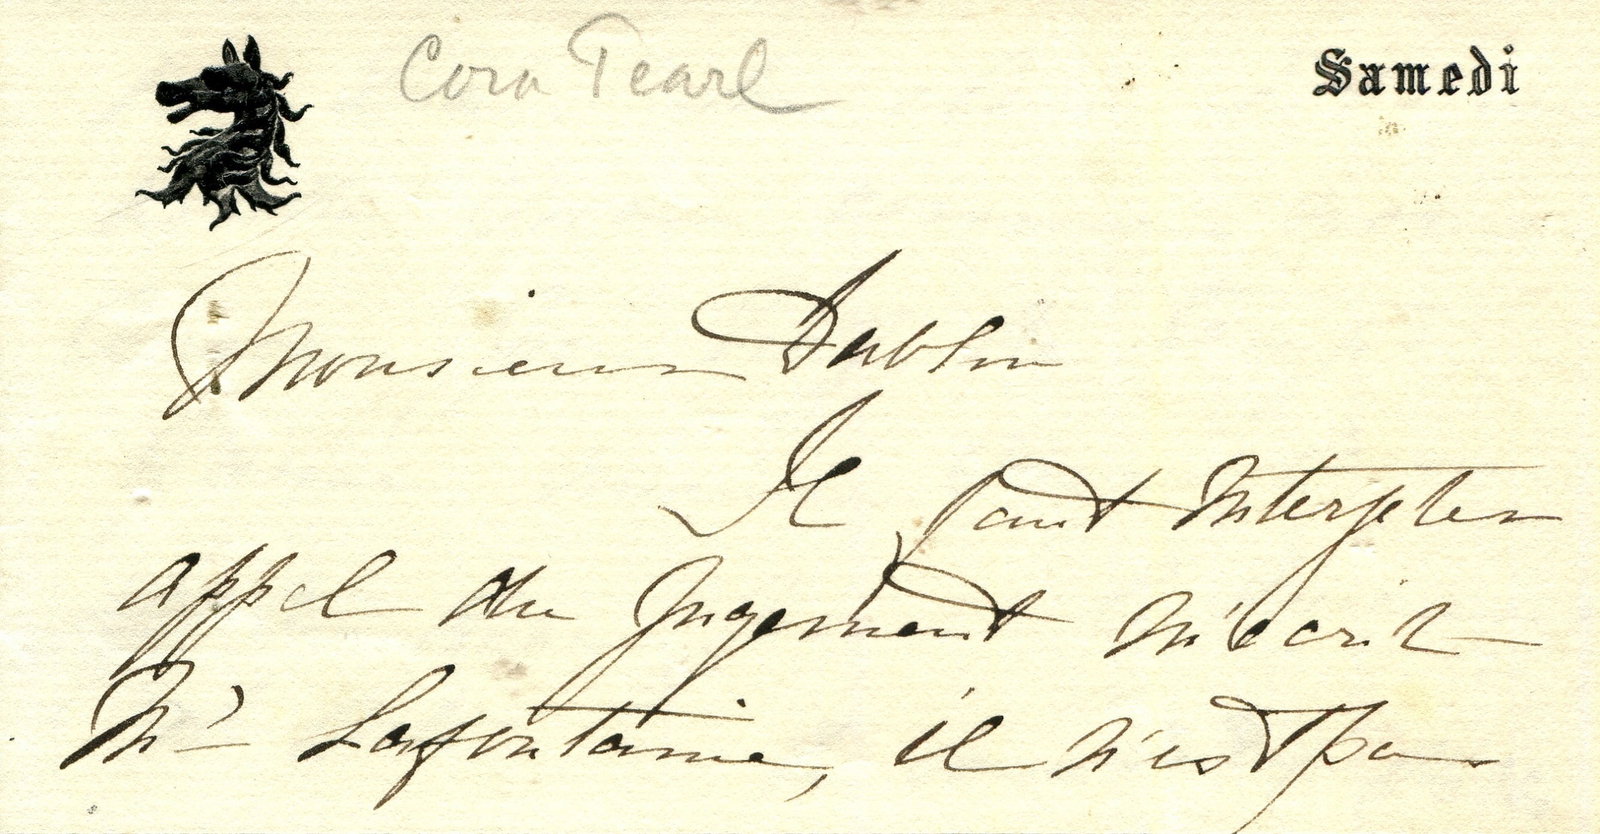 Cora Pearl
Samedi
Monsieur
Il faut interjeter
appel du jugement m'écrit
Mr Lafontaine, il n'est pas